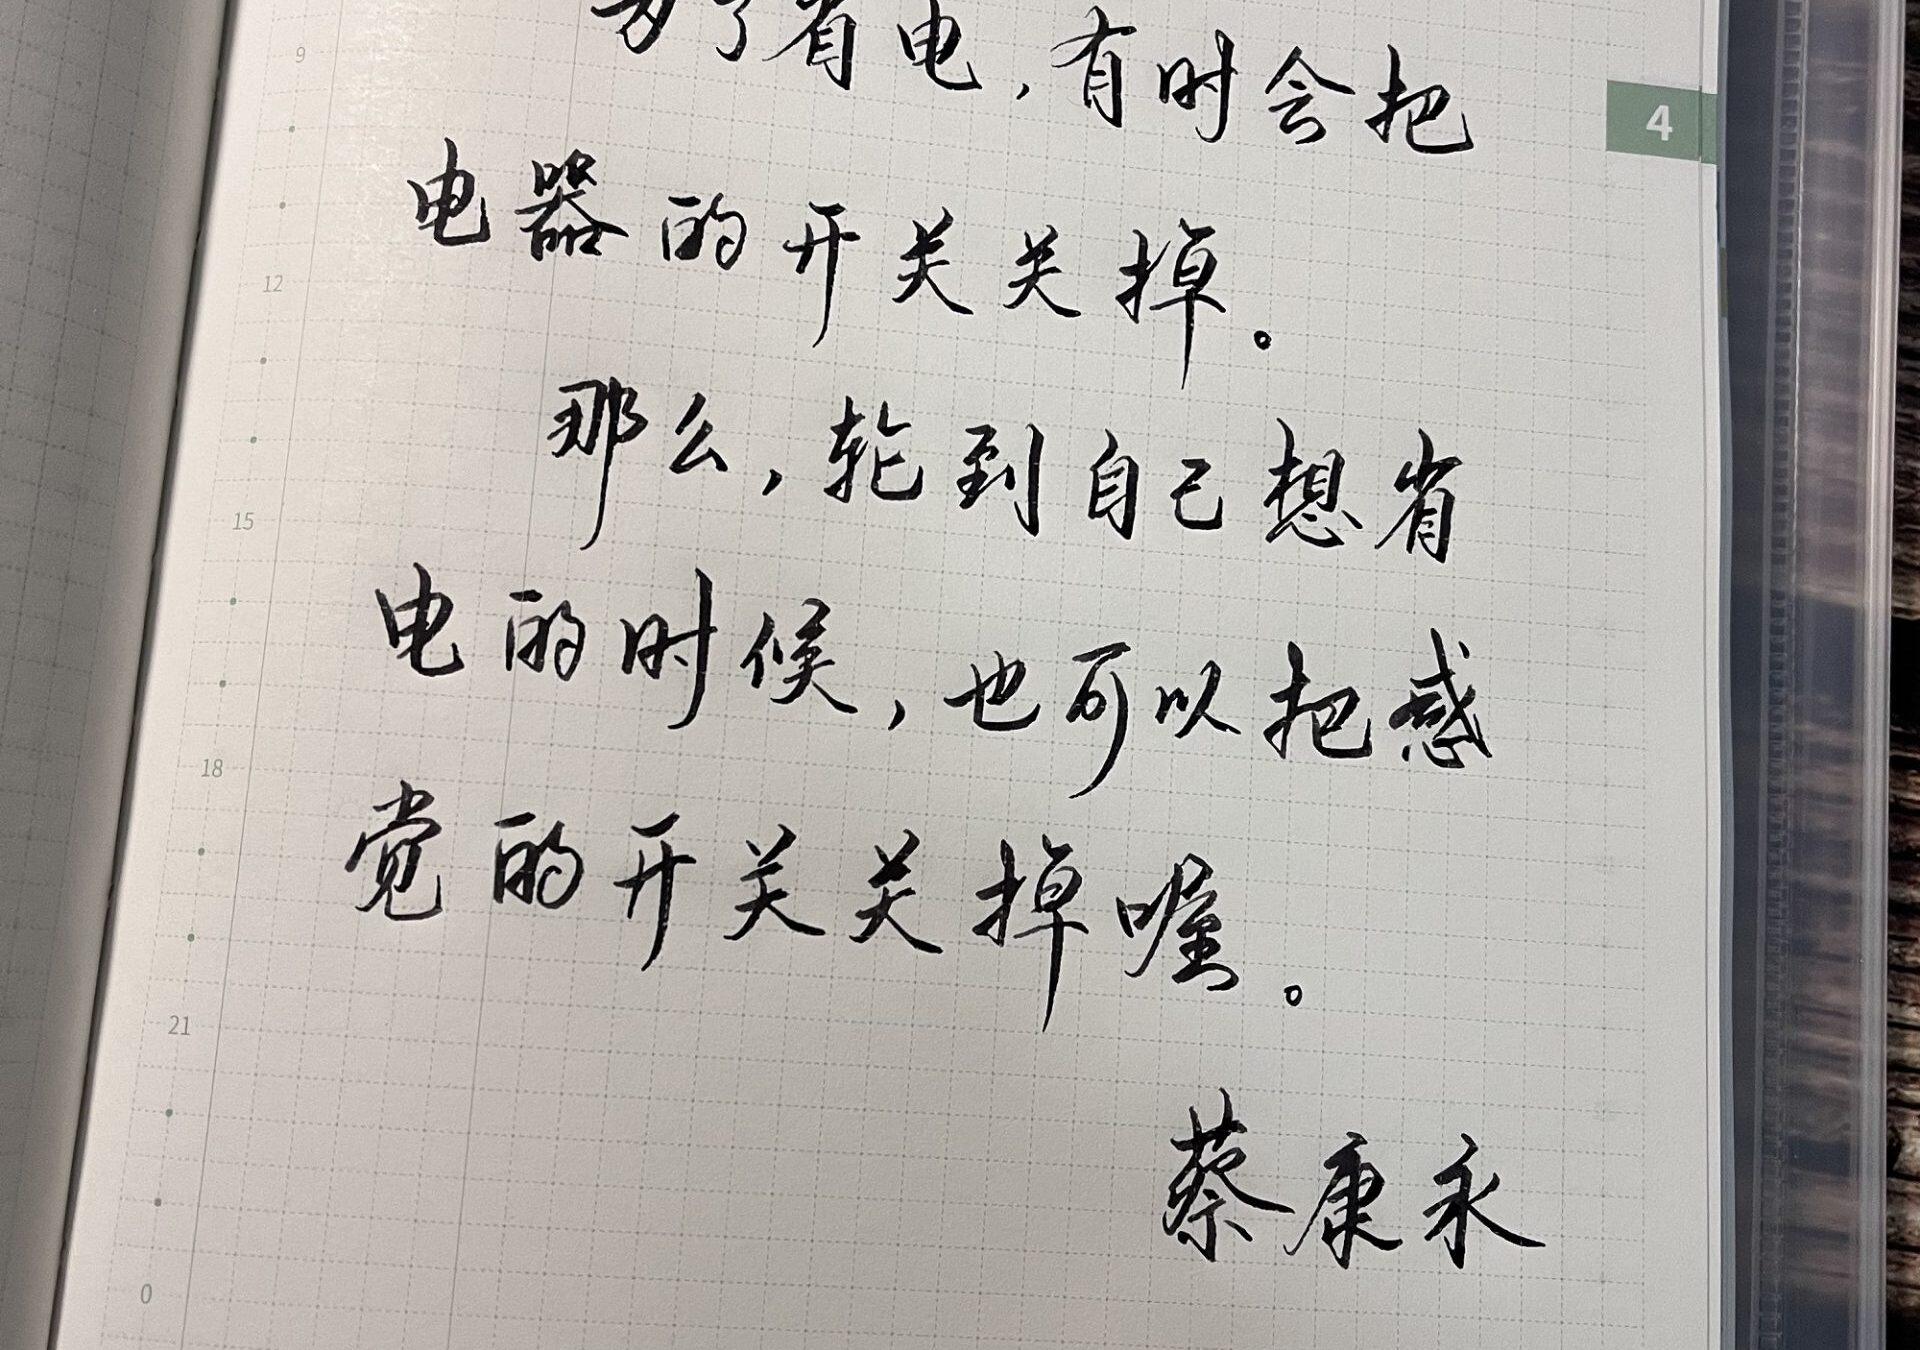 为了省电，有时会把
4
电器的开关关掉。
那么，轮到自己想省
电的时候，也可以把感
觉的开关关掉喔。
蔡康永
9
12
15
18
21
0